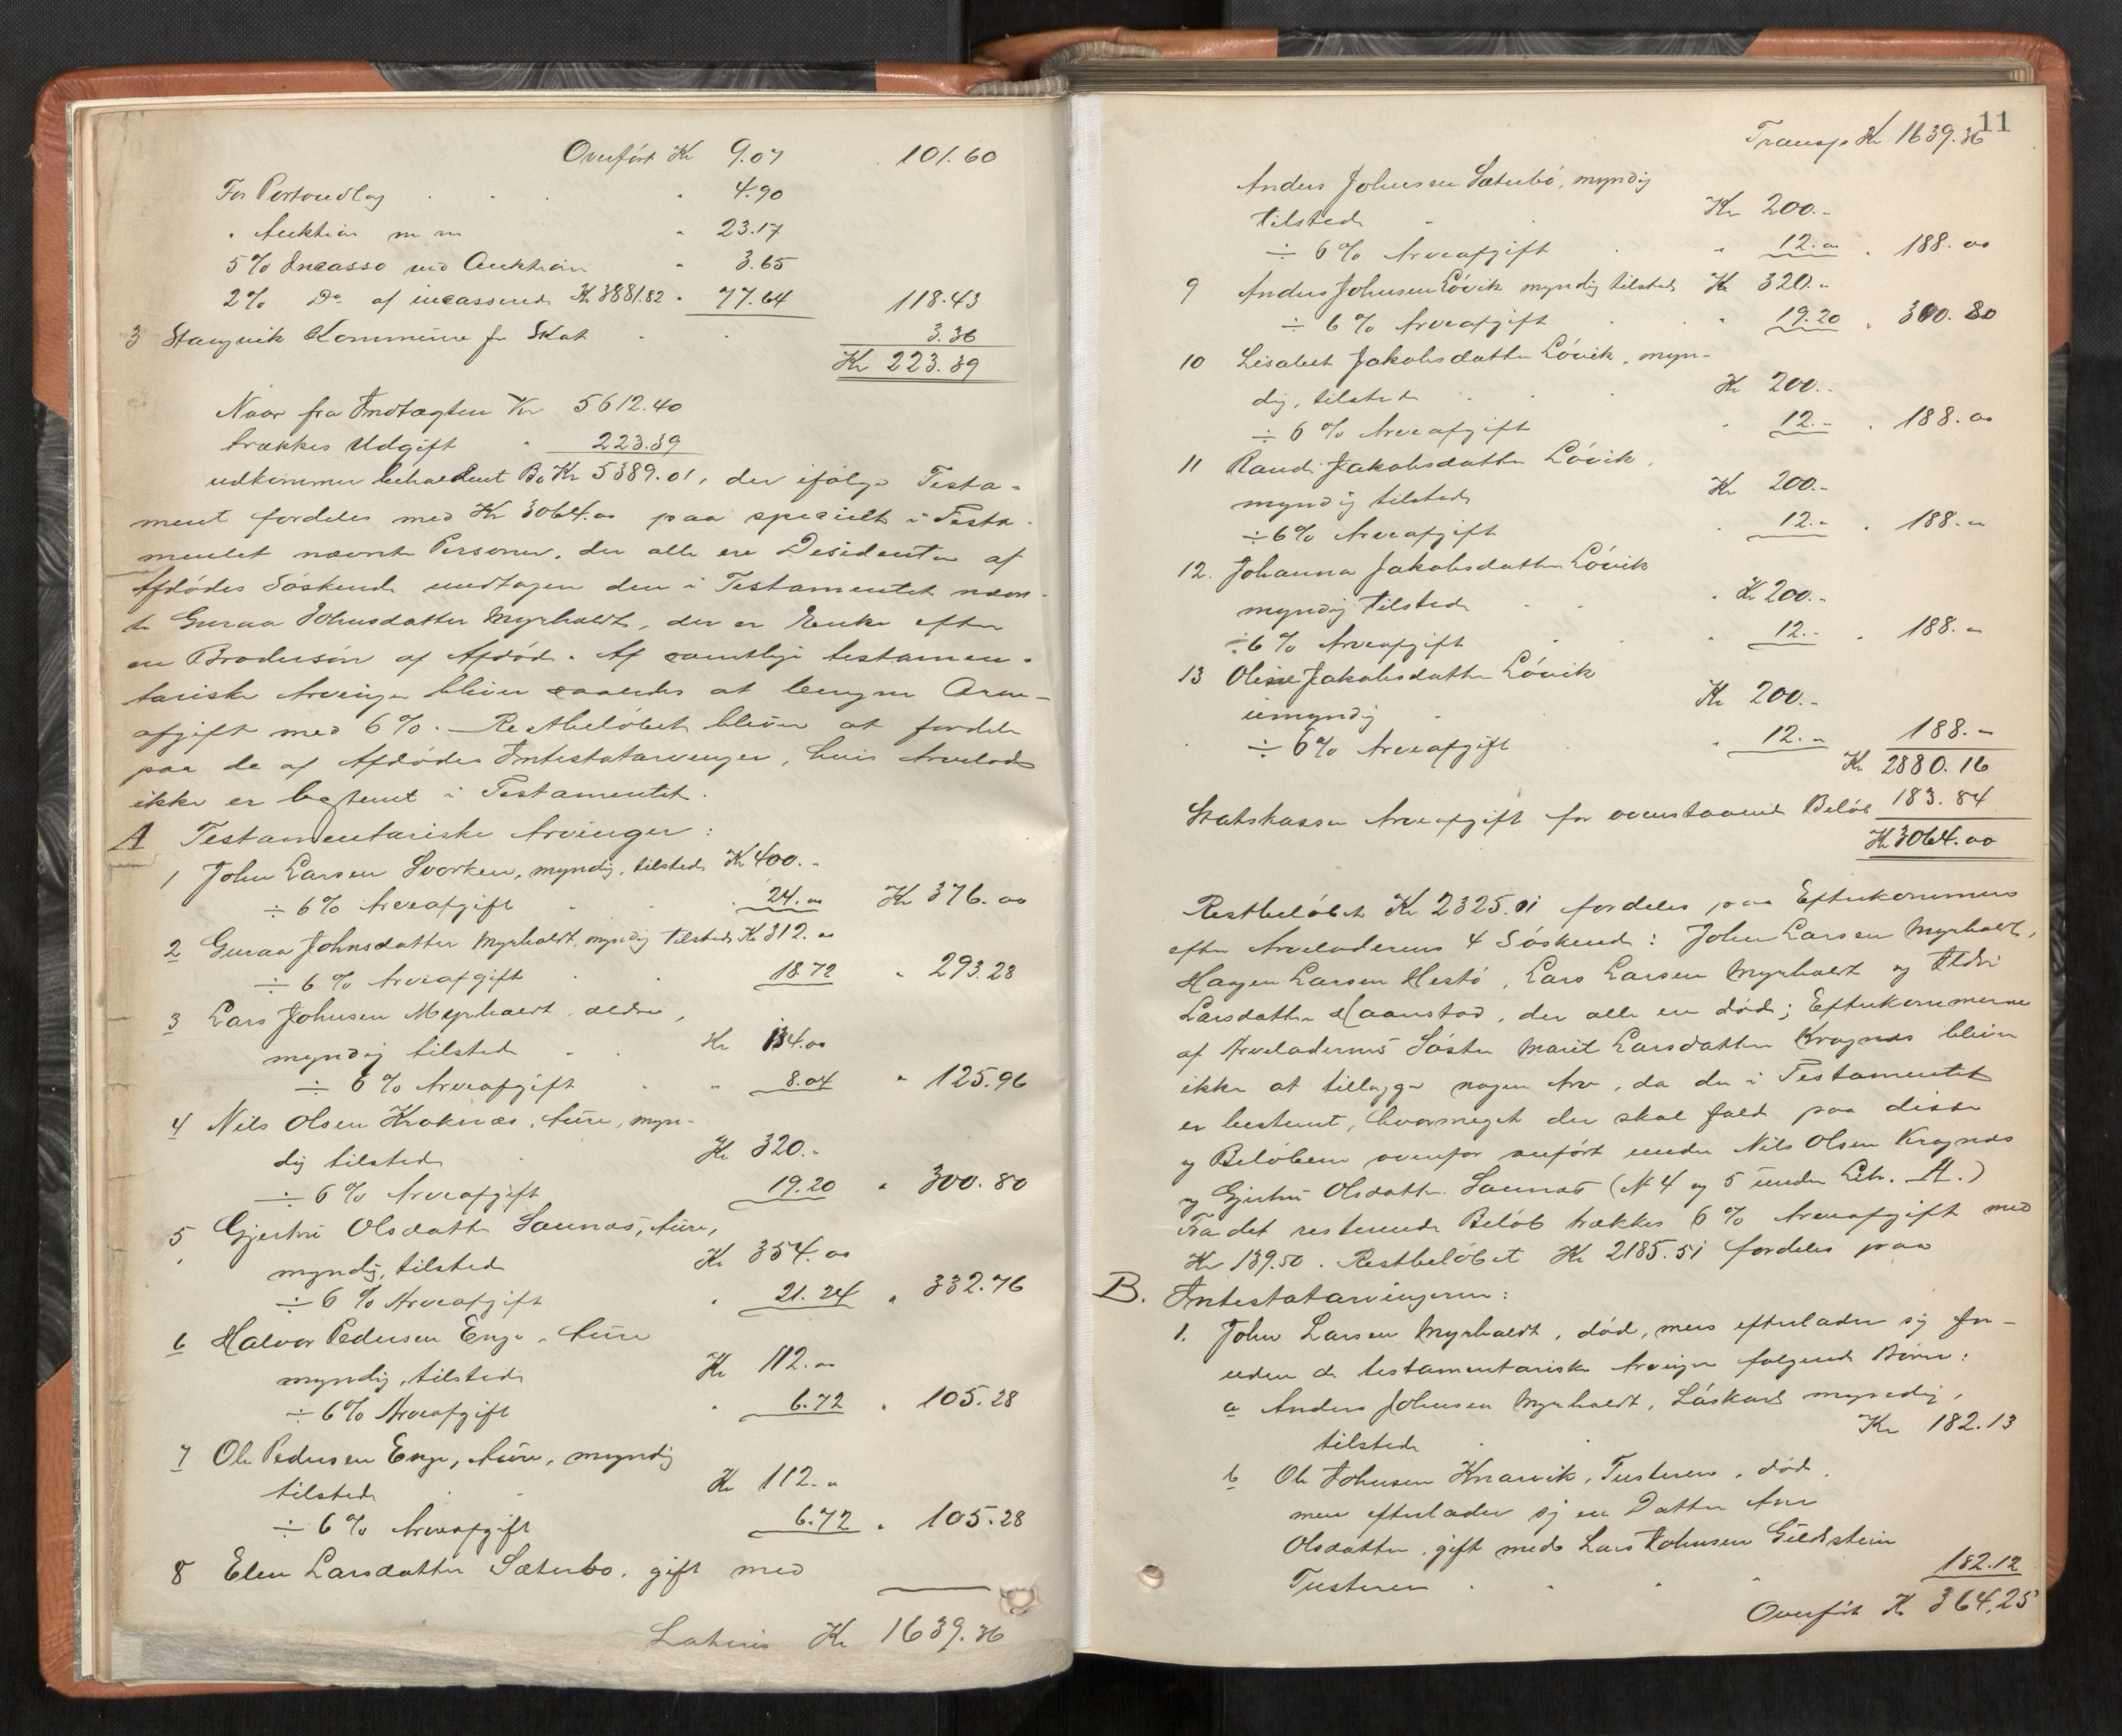 Overført Kr 9.07 101.60
For Portoudlæg " 4.90
" Auktion m m " 23.17
5% Incasso ved Auktion " 3.65
2% Do af incasserede Kr 3881.82 " 77.64 118.43
3 Stangvik Kommune for Skat 3.36
Kr 223.39
Naar fra Indtægten Kr 5612.40
trækkes Udgift " 223.39
udkommer behaldent Bo Kr 5389.01, der ifølge Testa-
ment fordeles med Kr 3064.00 paa specielt i Testa-
mentet nævnte Personer, der alle ere Desidenter af
Afdødes Søskende undtagen den i Testamentet nævn-
te Guraa Johnsdatter Myrholdt, der er Enke efter
en Brodersøn af Afdøde. Af samtlige testamen-
tariske Arvinger bliver saaledes at beregne Arve-
afgift med 6%. Restbeløbet bliver at fordele
paa de af Afdødes Intestatarvinger, hvis Arvelod
ikke er bestemt i Testamentet.
A Testamentariske Arvinger:
1 John Larsen Svorken, myndig, tilstede Kr 400.-
÷ 6% Arveafgift " 24.00 Kr 376.00
2 Guraa Johnsdatter Myrholdt, myndig tilstede Kr 312.00
÷ 6% Arveafgift 18.72 " 293.28
3 Lars Johnsen Myrholdt, ældre,
myndig tilstede Kr 134.00
÷ 6% Arveafgift " 8.04 " 125.96
4 Nils Olsen Kraknæs, Aure, myn-
dig tilstede Kr 320.-
÷ 6% Arveafgift 19.20 " 300.80
5 Gjertru Olsdatter Saunæs, Aure,
myndig, tilstede Kr 354.00
÷ 6% Arveafgift " 21.24 " 332.76
6 Halvor Pedersen Enge, Aure
myndig, tilstede Kr 112.00
÷ 6% Arveafgift " 6.72 " 105.28
7 Ole Pedersen Enge, Aure, myndig
tilstede Kr 112.00
÷ 6% Arveafgift 6.72 " 105.28
8 Elen Larsdatter Sæterbø, gift med
Lateris Kr 1639.36
11
Transp Kr 1639.36
Anders Johnsen Sæterbø, myndig
tilstede Kr 200.-
÷ 6% Arveafgift " 12.00 " 188.00
9 Anders Johnsen Løvik myndig tilstede Kr 320.-
÷ 6% Arveafgift " 19.20 " 300.80
10 Lisabet Jakobsdatter Løvik, myn-
dig, tilstede Kr 200.-
÷ 6% Arveafgift " 12.- " 188.00
11 Randi Jakobsdatter Løvik,
myndig tilstede Kr 200.-
÷ 6% Arveafgift " 12.- " 188.-
12. Johanna Jakobsdatter Løvik
myndig tilstede Kr 200.-
÷ 6% Arveafgift " 12.- " 188.-
13 Oline Jakobsdatter Løvik
umyndig Kr 200.-
÷ 6% Arveafgift " 12.- 188.-
Kr 2880.16
Statskassen Arveafgift for ovenstaaende Beløb 183.84
Kr 3064.00
Restbeløbet Kr 2325.01 fordeles paa Efterkommere
efter Arveladerens 4 Søskende: John Larsen Myrholdt,
Haagen Larsen Hestø, Lars Larsen Myrholdt og Ildri
Larsdatter Haanstad, der alle ere døde; Efterkommerne
af Arveladerens Søster Marit Larsdatter Kragnæs bliver
ikke at tillægge nogen Arv, da der i Testamentet
er bestemt, hvormeget der skal falde paa disse
og Beløbene ovenfor anført under Nils Olsen Kragnæs
og Gjertru Olsdatter Saunæs (No 4 og 5 under Litr. A.)
Fra det resterende Beløb trækkes 6% Arveafgift med
Kr 139.50. Restbeløbet Kr 2185.51 fordeles paa
B. Intestatarvingerne:
1. John Larsen Myrholdt, død, men efterlader sig for-
uden de testamentariske Arvinger følgende Børn:
a Anders Johnsen Myrholdt, myndig,
tilstede Kr 182.13
b Ole Johnsen Knarvik, Tusteren, død,
men efterlader sig en Datter Ane
Olsdatter, gift med Lars Johnsen Guldstein
Tusteren 182.12
Overført Kr 364.25